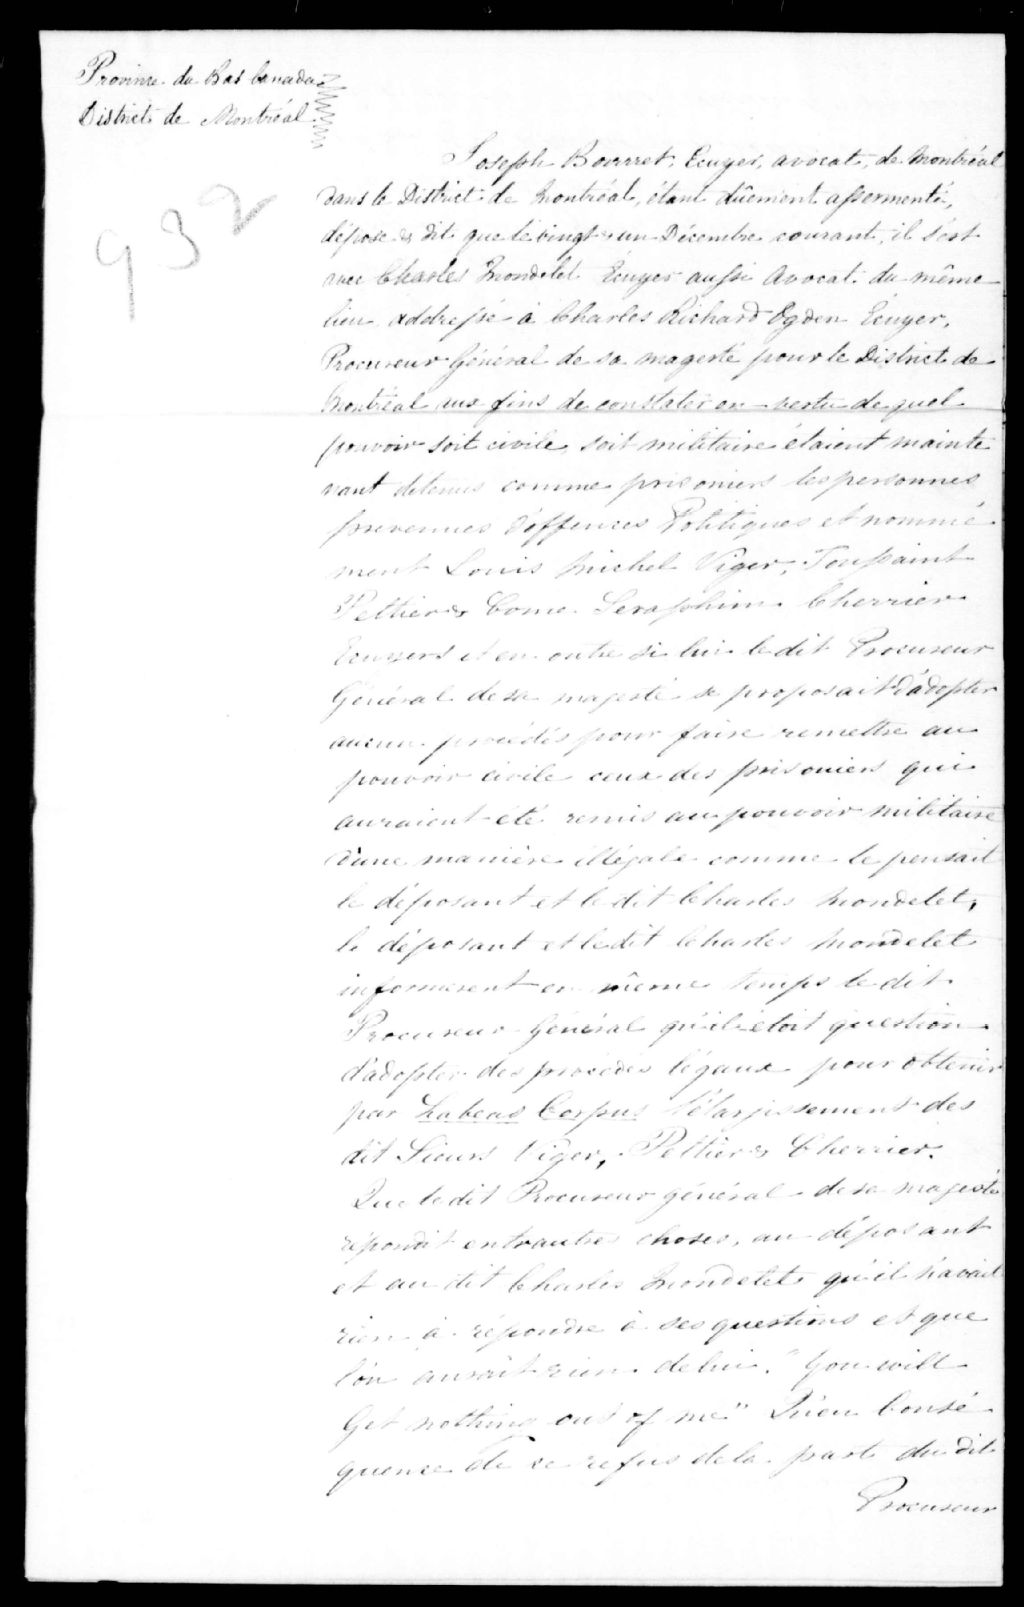 Province du Bas Canada
District de Montréal
932
Joseph Bourret, Ecuyer, avocat, de Montréal
dans le District de Montréal, étant dûement assermenté,
dépose & dit que le vingt-un Décembre courant, il s'est
avec Charles Mondelet Ecuyer aussi Avocat du même
lieu addressé à Charles Richard Ogden Ecuyer,
Procureur Général de sa magesté pour le District de
Montréal aux fins de constater en vertu de quel
pouvoir soit civile, soit militaire étaient mainte
nant détenus comme prisoniers les personnes
prevenues d'offences Politiques et nommé
ment Louis Michel Viger, Toussaint
Peltier & Come Seraphim Cherrier
Ecuyers et en outre si lui le dit Procureur
Général de sa majesté se proposait d'adopter
aucun procédés pour faire remettre au
pouvoir civile ceux des prisoniers qui
auraient été remis au pouvoir militaire
d'une manière illégale comme le pensait
le déposant et le dit Charles Mondelet,
le déposant et le dit Charles Mondelet
informerent en même temps le dit
Procureur Général qu'il étoit question
d'adopter des procédés légaux pour obtenir
par habeas Corpus l'élargissement des
dit Sieurs Viger, Peltier & Cherrier.
Que le dit Procureur général de sa majesté
répondit entrautres choses, au déposant
et au dit Charles Mondelet qu'il n'avait
rien à répondre à ses questions et que
l'on aurait rien de lui. "You will
Get nothing out of me" Qu'en Consé
quence de ce refus de la part du dit
Procureur